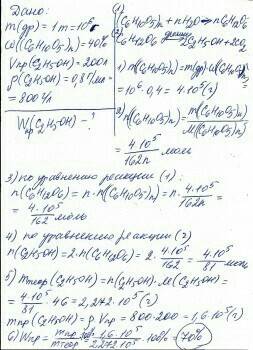 Дано:
m(др) = 1т = 10⁶г
ω((C₆H₁₀O₅)n) = 40%
Vпр(C₂H₅OH) = 200л
ρ(C₂H₅OH) = 0,8г/мл =
= 800г/л
Wпр(C₂H₅OH) - ?
(1) (C₆H₁₀O₅)n + nH₂O → nC₆H₁₂O₆
(2) C₆H₁₂O₆ → 2C₂H₅OH + 2CO₂
1) m((C₆H₁₀O₅)n) = m(др)·ω((C₆H₁₀O₅)n) =
= 10⁶·0,4 = 4·10⁵(г)
2) n((C₆H₁₀O₅)n) = m((C₆H₁₀O₅)n) / M((C₆H₁₀O₅)n) =
= 4·10⁵ / 162n моль
3) по уравнению реакции (1):
n(C₆H₁₂O₆) = n·n((C₆H₁₀O₅)n) = n·4·10⁵ / 162n =
= 4·10⁵ / 162 моль
4) по уравнению реакции (2)
n(C₂H₅OH) = 2·n(C₆H₁₂O₆) = 2·4·10⁵ / 162 = 4·10⁵ / 81 моль
5) mтеор(C₂H₅OH) = n(C₂H₅OH)·M(C₂H₅OH) =
= 4·10⁵ / 81 · 46 = 2,272·10⁵(г)
mпр(C₂H₅OH) = ρ·Vпр = 800·200 = 1,6·10⁵(г)
6) Wпр = mпр / mтеор = 1,6·10⁵ / 2,272·10⁵ · 100% = 70%